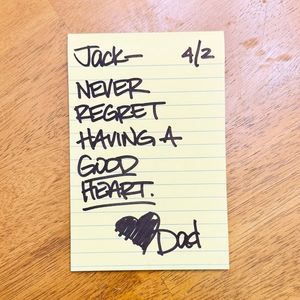 Jack- 4/2
NEVER
REGRET
HAVING A
GOOD
HEART.
Dad